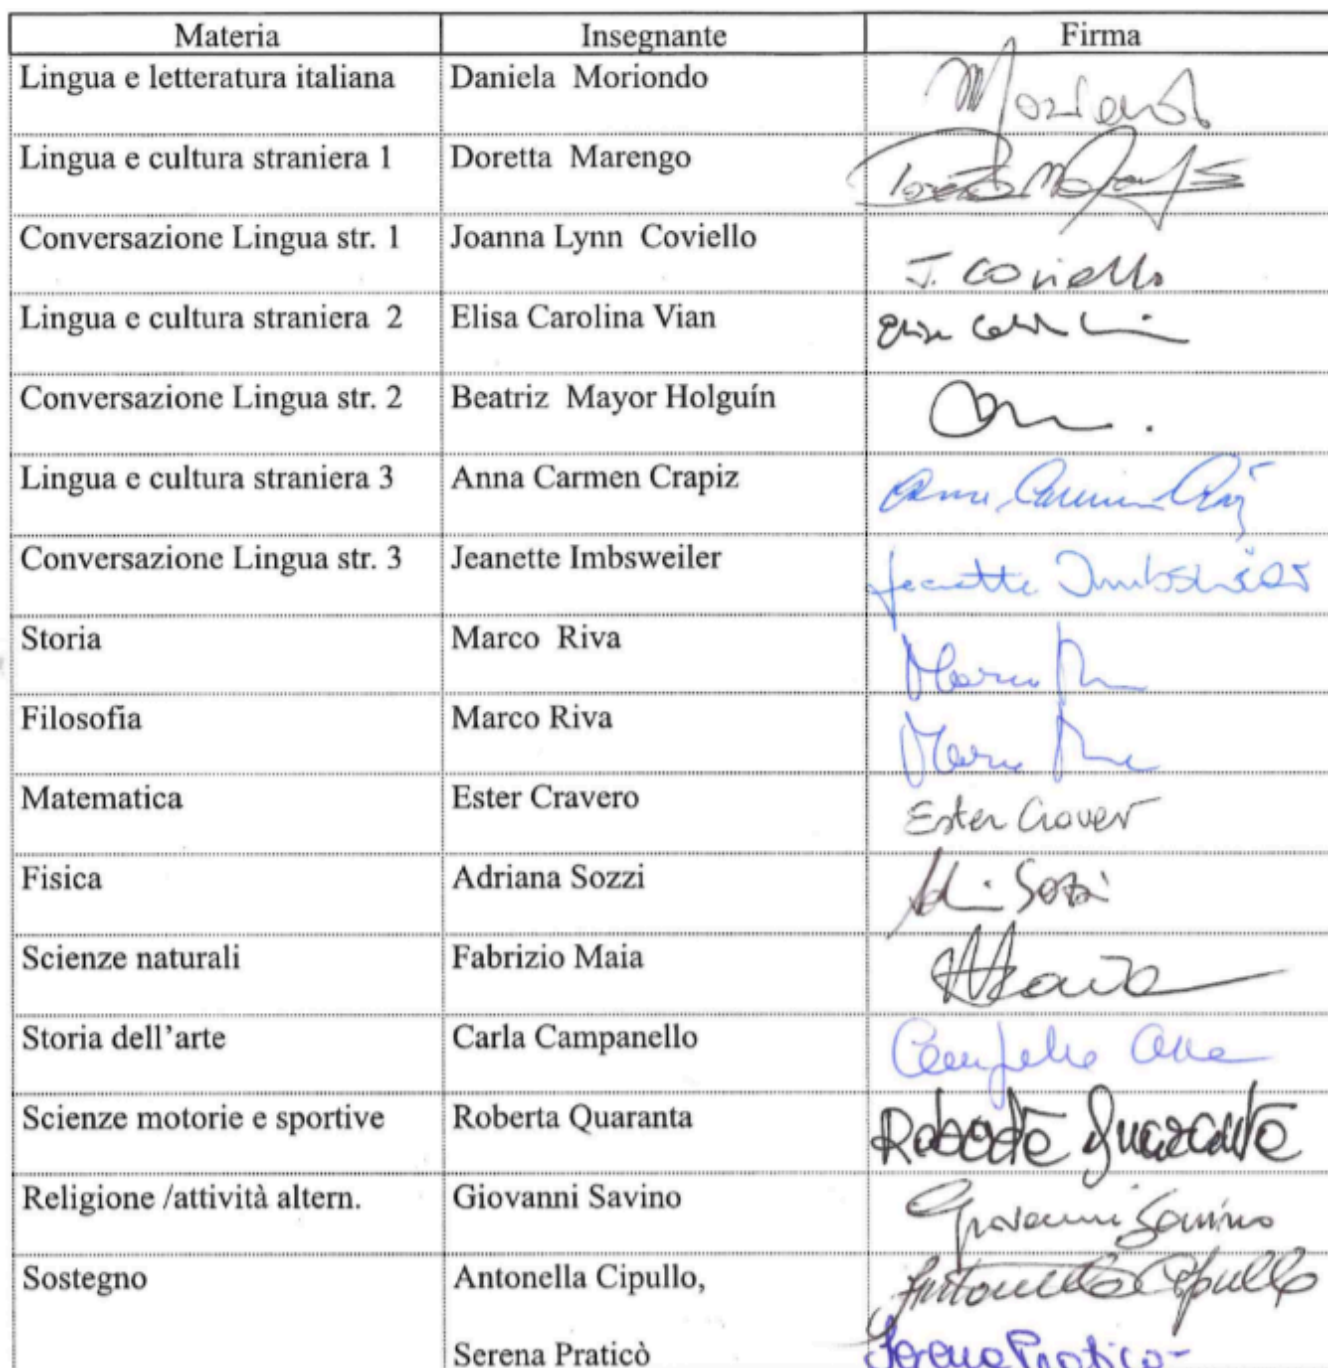 Materia Insegnante Firma
Lingua e letteratura italiana Daniela Moriondo
Lingua e cultura straniera 1 Doretta Marengo
Conversazione Lingua str. 1 Joanna Lynn Coviello J. Coviello
Lingua e cultura straniera 2 Elisa Carolina Vian
Conversazione Lingua str. 2 Beatriz Mayor Holguín
Lingua e cultura straniera 3 Anna Carmen Crapiz
Conversazione Lingua str. 3 Jeanette Imbsweiler Jeanette
Storia Marco Riva Marco
Filosofia Marco Riva Marco
Matematica Ester Cravero Ester
Fisica Adriana Sozzi Sozzi
Scienze naturali Fabrizio Maia
Storia dell’arte Carla Campanello
Scienze motorie e sportive Roberta Quaranta Roberta Quaranta
Religione /attività altern. Giovanni Savino Giovanni Savino
Sostegno Antonella Cipullo, Antonella Cipullo
Serena Praticò Serena Praticò